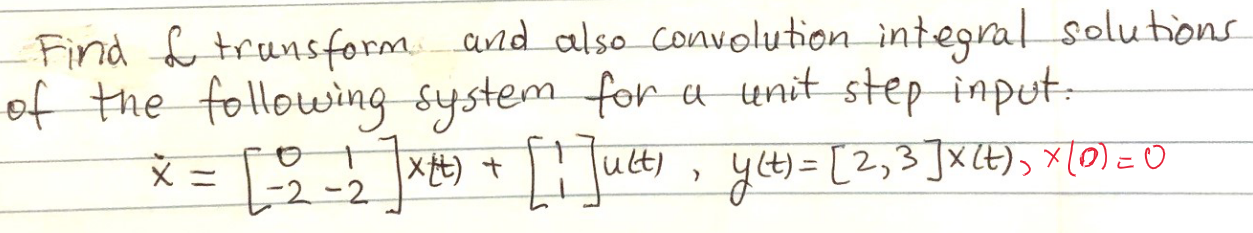 Find ℒ transform and also convolution integral solutions
of the following system for a unit step input:
ẋ = [0 1; -2 -2] x(t) + [1; 1] u(t), y(t) = [2, 3] x(t), x(0) = 0